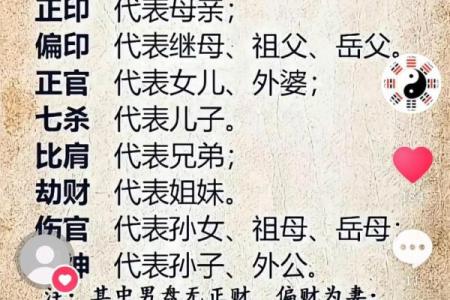 正印 代表母亲；
偏印 代表继母、祖父、岳父。
正官 代表女儿、外婆；
七杀 代表儿子。
比肩 代表兄弟；
劫财 代表姐妹。
伤官 代表孙女、祖母、岳母；
神 代表孙子、外公。
注：其中男盘无正财，偏财为妻；